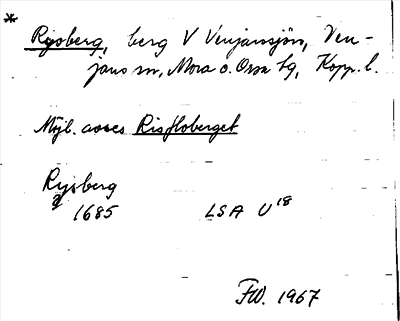 * Rysberg, berg V Venjanssjön, Ven-
jans sn, Mora o. Orsa tg, Kopp. l.
Möjl. avses Risfloberget
Rysberg
1685 LSA U 18
FW. 1967